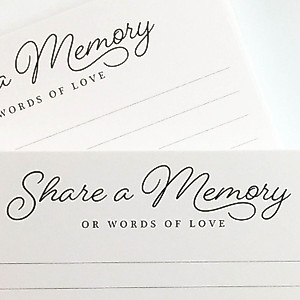 a Memory
WORDS OF LOVE
Share a Memory
OR WORDS OF LOVE